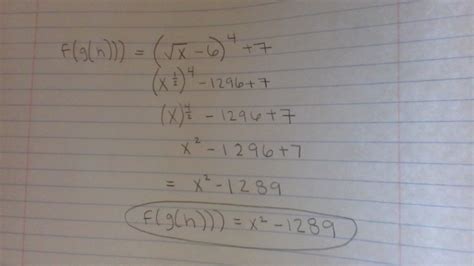 f(g(h))) = (√x - 6)⁴ + 7
(x^½)⁴ - 1296 + 7
(x)^4/2 - 1296 + 7
x² - 1296 + 7
= x² - 1289
f(g(h))) = x² - 1289